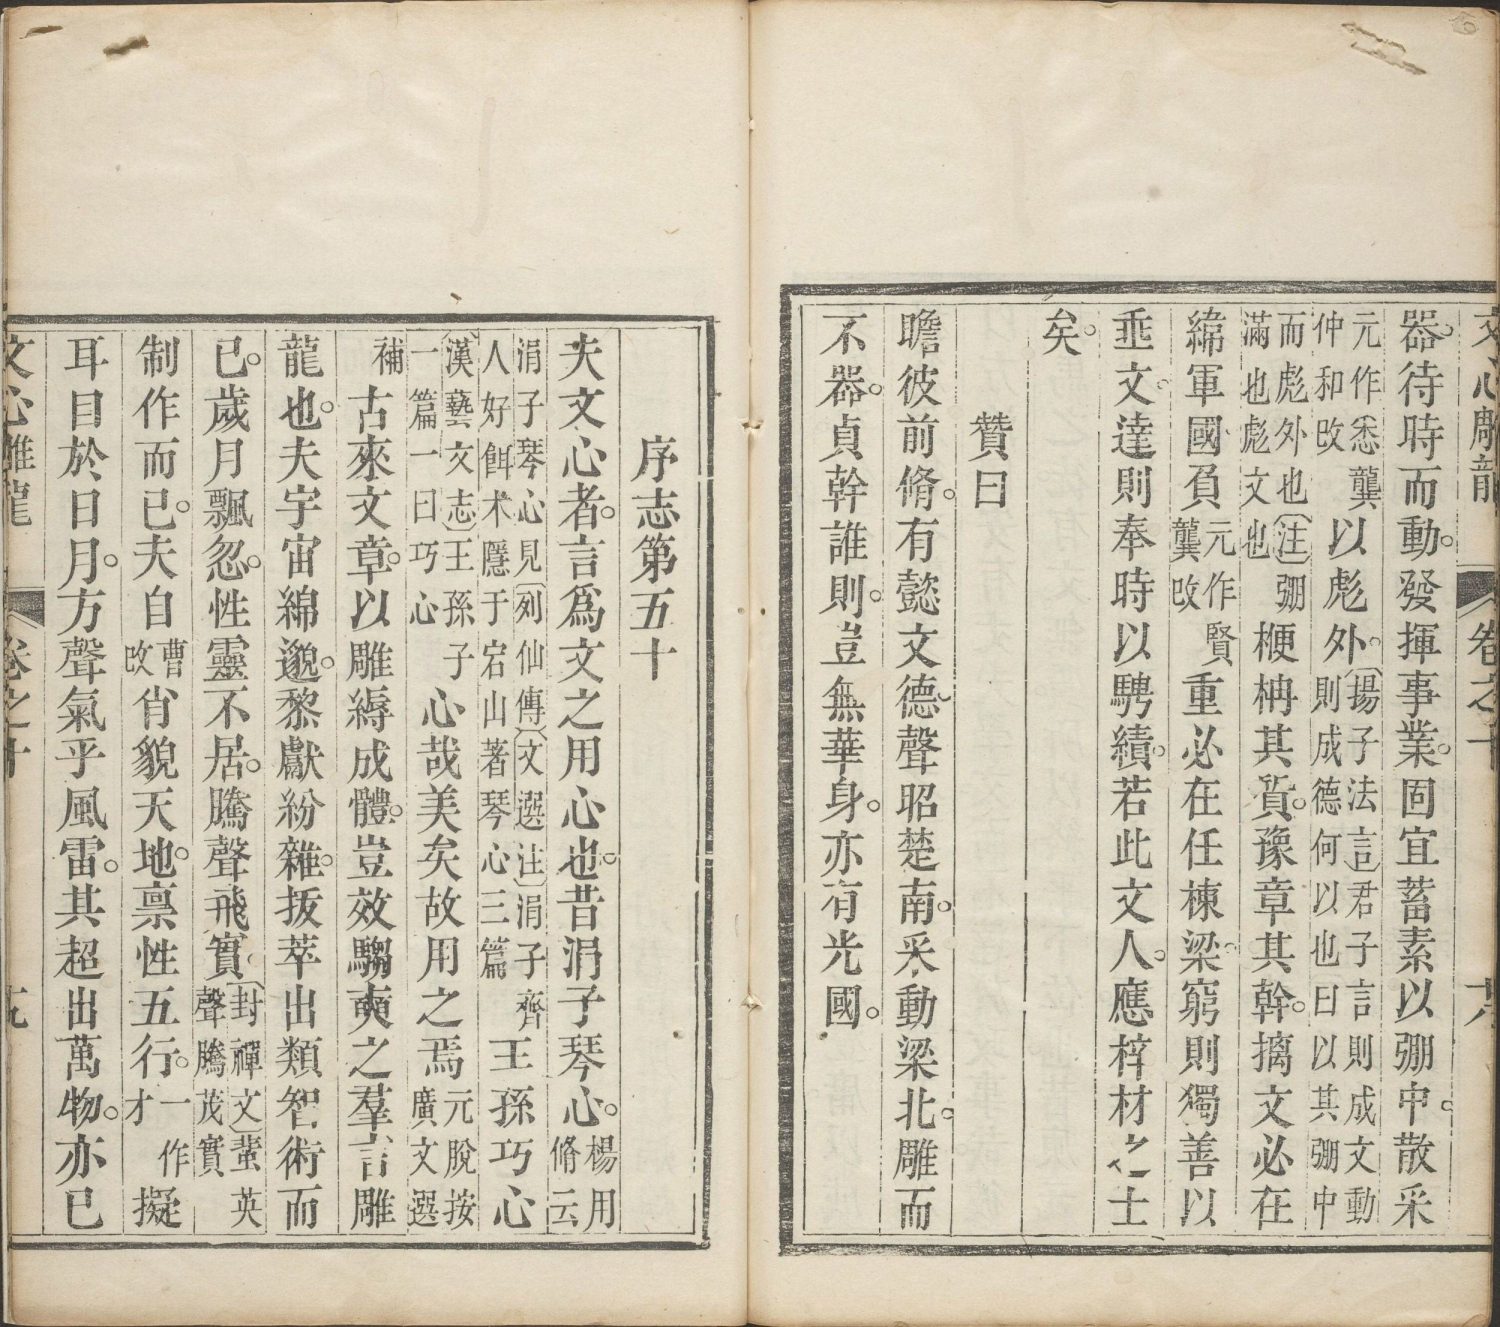 文心雕龍 卷之十 十八
器。待時而動。發揮事業。固宜蓄素以弸中。散采
元作〔悉〕龔仲和改以彪外。〔揚子法言〕君子言則成文動則成德何以也曰以其弸中
而彪外也〔注〕弸滿也彪文也楩柟其質。豫章其幹。摛文必在
緯軍國。負元作賢龔改重必在任棟梁。窮則獨善以
垂文。達則奉時以騁績。若此文人。應梓材之士
矣。
贊曰
瞻彼前脩。有懿文德。聲昭楚南。采動梁北。雕而
不器。貞幹誰則。豈無華身。亦有光國。
序志第五十
夫文心者。言爲文之用心也。昔涓子琴心。楊用脩云
涓子琴心見〔列仙傳〕〔文選注〕涓子齊人好餌术隱于宕山著琴心三篇王孫巧心
〔漢藝文志〕王孫子一篇一曰巧心心哉美矣故用之焉元脫按廣文選
補古來文章。以雕縟成體。豈效騶奭之羣言雕
龍也。夫宇宙綿邈。黎獻紛雜。拔萃出類智術而
已。歲月飄忽。性靈不居。騰聲飛實。〔封禪文〕蜚英聲騰茂實
制作而已。夫自曹改肖貌天地。禀性五行。一作才擬
耳目於日月。方聲氣乎風雷。其超出萬物。亦已
文心雕龍 卷之十 十九